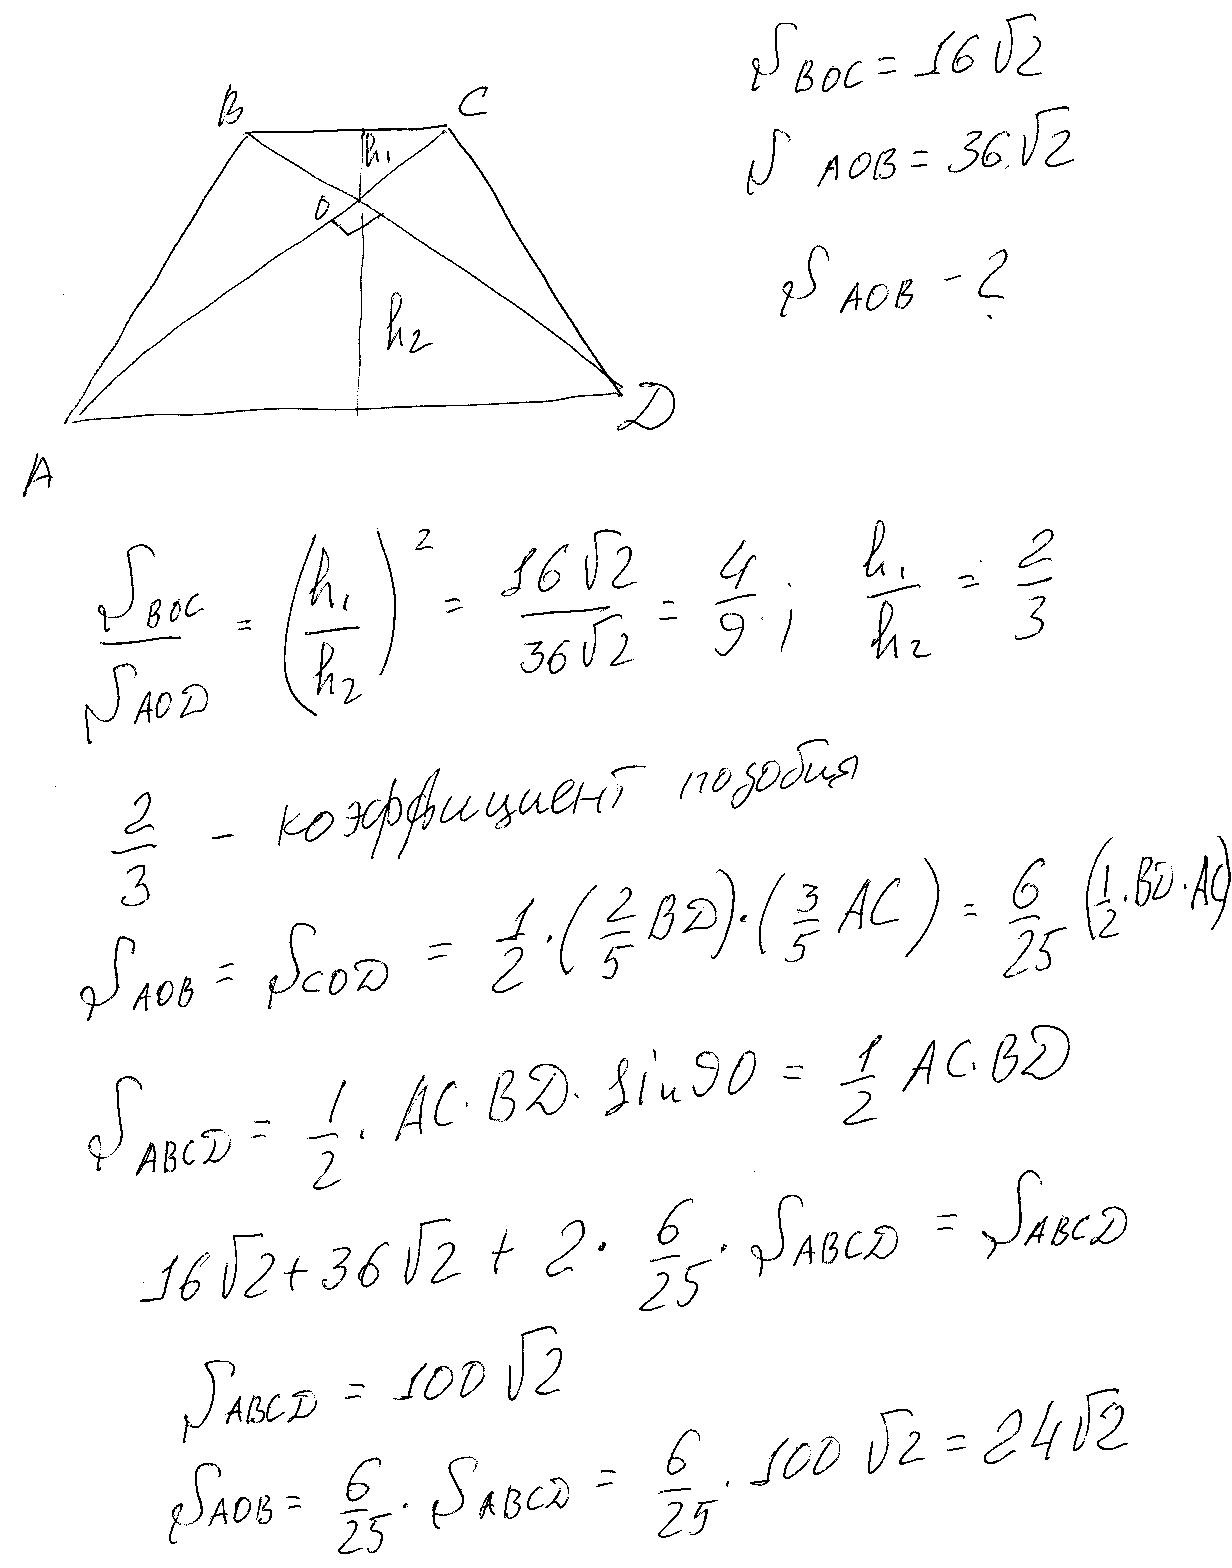 B C
h₁
O
h₂
A D
S BOC = 16√2
S AOB = 36√2
S AOB - ?
S BOC / S AOD = (h₁/h₂)² = 16√2 / 36√2 = 4/9 ; h₁/h₂ = 2/3
2/3 - коэффициент подобия
S AOB = S COD = 1/2 · (2/5 BD) · (3/5 AC) = 6/25 (1/2 · BD · AC)
S ABCD = 1/2 · AC · BD · sin 90 = 1/2 AC · BD
16√2 + 36√2 + 2 · 6/25 · S ABCD = S ABCD
S ABCD = 100√2
S AOB = 6/25 · S ABCD = 6/25 · 100√2 = 24√2